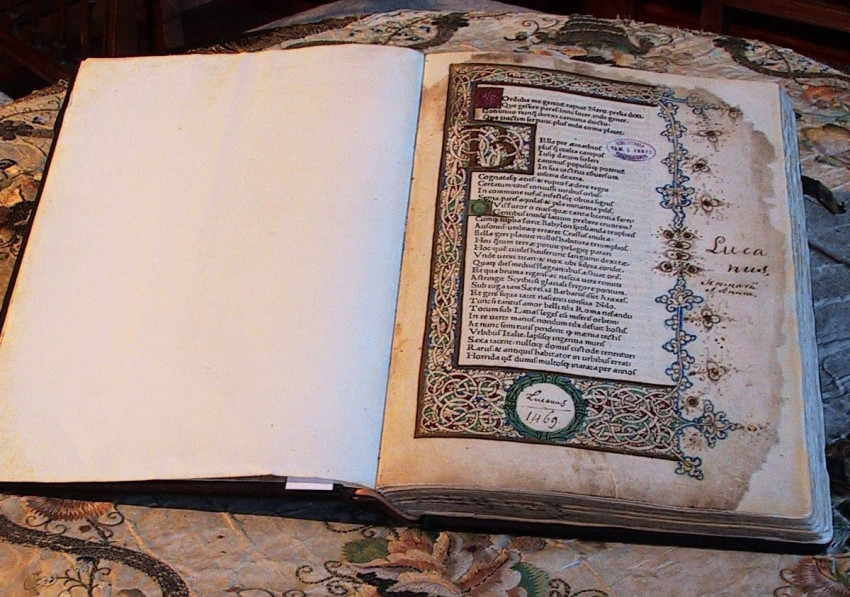 Corduba me genuit rapuit Nero. prelia dixi
Que gessere pares hinc socer inde gener.
Continuo nunq direxi carmina ductu
Que tractim serpant plus mihi coma placent.
BElla per æmathios
plusq ciuilia campos
Iusq datum sceleri
canimus populuq potentē
In sua uictrici cōuersum
uiscera dextra.
Cognatasq acies & rupto fœdere regni
Certatum totis concussi uiribus orbis
In commune nefas infestisq obuia signis
Signa pares aquilas & pila minantia pilis.
Vis furor o ciues quæ tanta licentia ferri
Gentibus inuisis latium prebere cruorem?
Cumq superba foret Babylon spolianda tropheis
Ausoniis umbraq erraret Crassus inulta:
Bella geri placuit nullos habitura triumphos.
Heu quantum terræ potuit pelagiq parari
Hoc quē ciuiles hauserunt sanguine dextræ.
Vnde uenit titan & nox ubi sidera condit.
Quaq dies medius flagrantibus æstuat oris.
Et qua bruma rigens ac nescia uere remitti
Astringit Scythico glaciali frigore pontum.
Sub iuga iam Særes iā Barbarus isset Araxes.
Et gens siqua iacet nascenti conscia Nilo.
Tunc si tantus amor belli tibi Roma nefandi
Totum sub Latias leges cū miseris orbem
In te uerte manus. nondum tibi defuit hostis.
At nunc semirutis pendent qꝫ mœnia tectis
Vrbibus Italiæ. lapsisq ingentia muris
Saxa iacent. nulloq domus custode tenentur:
Rarus & antiquis habitator in urbibus errat:
Horrida qꝫ dumis multosq inarata per annos
Lucanus
1469
Luca
nus.